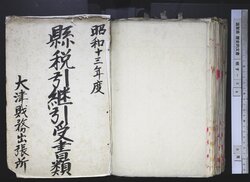 昭和十三年度
縣税引継引受書類
大津財務出張所